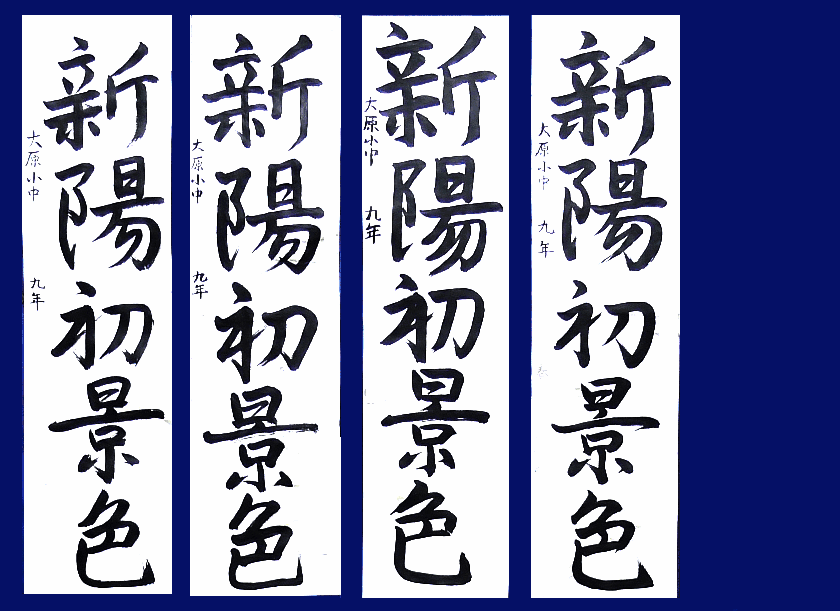 新陽初景色
大原小中 九年
新陽初景色
大原小中 九年
新陽初景色
大原小中 九年
新陽初景色
大原小中 九年